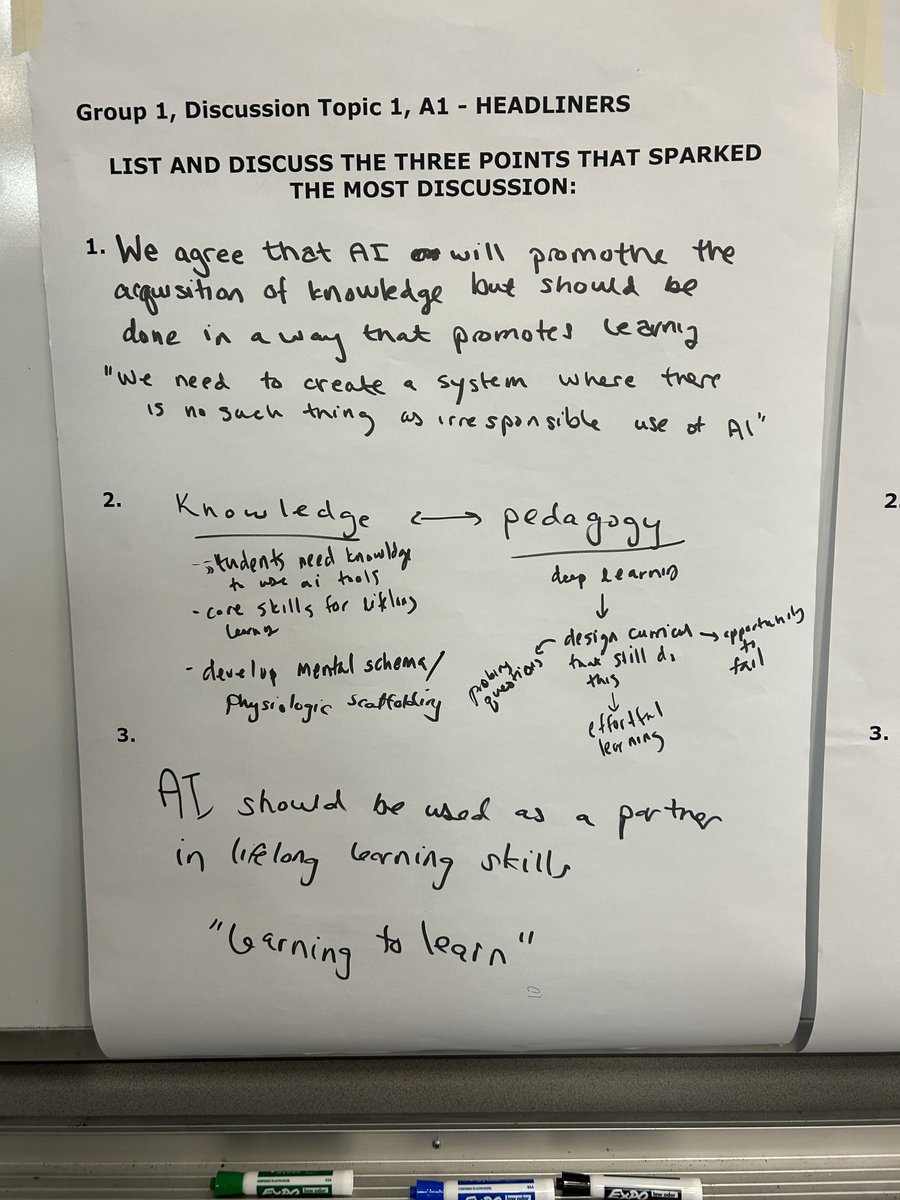 Group 1, Discussion Topic 1, A1 - HEADLINERS
LIST AND DISCUSS THE THREE POINTS THAT SPARKED
THE MOST DISCUSSION:
1. We agree that AI will promothe the
acqusition of knowledge but should be
done in a way that promotes learnig
"We need to create a system where there
is no such thing as irresponsible use of AI"
2. Knowledge ⟷ pedagogy
- students need knowldge
to use ai tools
- core skills for liklong
learng
- develop mental schema/
physiologic scaffolding
deep learnig
↓
← design curricul → opportunity
that still do
this
to
fail
probing
questions
↓
effortful
learning
3.
AI should be used as a partner
in lifelong learning skills
"learning to learn"
2.
3.
EXPO
EXPO
EXPO